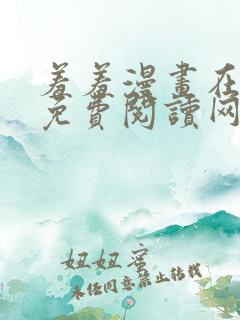 羞羞漫畫在
免費閱讀网
妞妞蜜
未经同意禁止转载